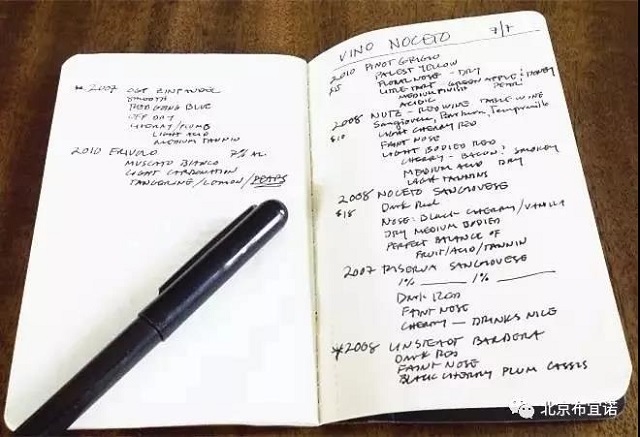 * 2007 OGP ZINFANDEL
SMOOTH
RED GOING BLUE
OFF DRY
CHERRY/PLUMB
LIGHT ACID
MEDIUM TANNIN
2010 FRIVOLO 7% AL.
MUSCATO BIANCO
LIGHT CARBONATION
TANGERINE/LEMON/PEARS
VINO NOCETO 7/7
2010 PINOT GRIGIO
PALEST YELLOW
FLORAL NOSE - DRY
LITTLE TART GREEN APPLE
MEDIUM FINISH PEAR
ACIDIC
2008 NUTZ - RED WINE TABLE WINE
$10 Sangiovese, Barbera, Tempranillo
LIGHT CHERRY RED
FAINT NOSE
LIGHT BODIED RED
CHERRY - BACON: SMOKEY
MEDIUM ACID DRY
LIGHT TANNINS
2008 NOCETO SANGIOVESE
$18 Dark Red
NOSE: BLACK CHERRY/VANILLA
DRY MEDIUM BODIED
PERFECT BALANCE OF
FRUIT/ACID/TANNIN
2007 RISERVA SANGIOVESE
1% ____ 1% ____
DARK RED
FAINT NOSE
CHERRY — DRINKS NICE
*2008 LINSTEADT BARBERA
DARK RED
FAINT NOSE
BLACK CHERRY PLUM CASSIS
北京布宜诺